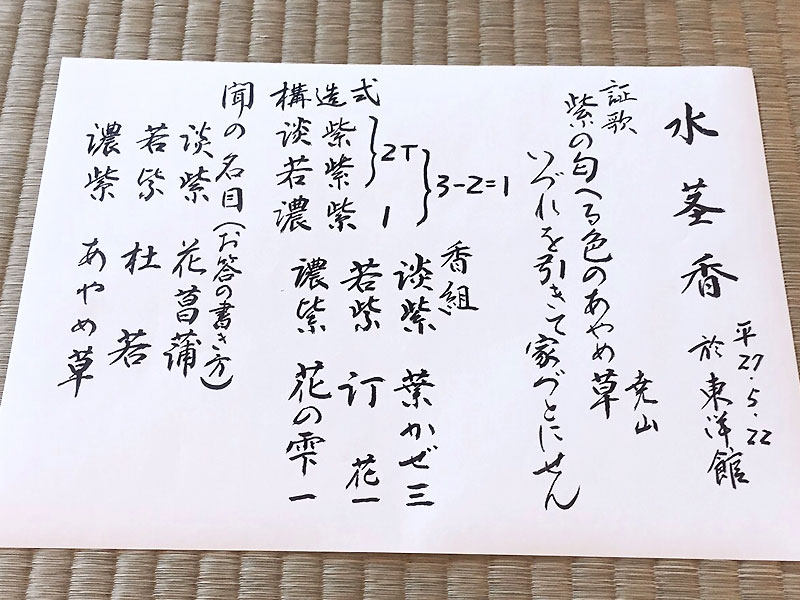 水茎香
平27・5・22
於東洋館
証歌
紫の匂へる色のあやめ草
いづれを引きて家づとにせん
尭山
香組
淡紫 葉かぜ 三
若紫 訂花 一
濃紫 花の雫 一
構造式
淡紫
若紫 2T
濃紫 1
3-2=1
聞の名目(お答の書き方)
淡紫 花菖蒲
若紫 杜若
濃紫 あやめ草